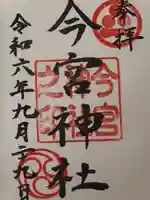 奉拝
今宮神社
今宮
之印
令和六年九月二九日